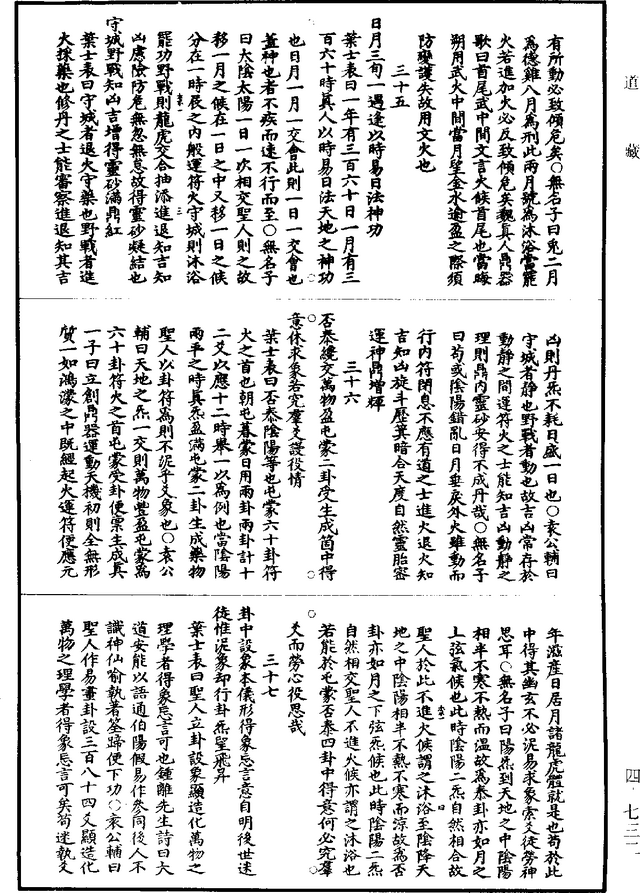 道藏
有所動必致傾危矣〇無名子曰兎二月
爲德雞八月爲刑此兩月號爲沐浴當罷
火若進加火必反致傾危矣觀真人鼎器
歌曰首尾武中間文言火候首尾也當晦
朔用武火中間當月望金水逾盈之際須
防變護失故用文火也
三十五
日月三旬一遇逢以時易日法神功
葉士表曰一年有三百六十日一月有三
百六十時真人以時易日法天地之神功
也日月一月一交會此則一日一交會也
蓋神也者不疾而速不行而至〇無名子
曰大陰太陽一日一次相交聖人則之故
移一月之候在一日之中又移一日之候
分在一時辰之内般運符火守城則沐浴
罷功野戰則龍虎交合抽添進退知吉知
凶慮險防危無忽無怠故得靈砂凝結也
守城野戰知凶吉增得靈砂滿鼎紅
葉士表曰守城者退火守藥也野戰者進
火採藥也修丹之士能審察進退知其吉
凶則丹炁不耗日盛一日也〇袁公輔曰
守城者静也野戰者動也故吉凶常存於
動静之間運符火之士能知吉凶動静之
理則鼎内靈砂安得不成丹哉〇無名子
曰苟或陰陽錯亂日月垂戾外火雖動而
行内符閉息不應有道之士進火退火知
吉知凶旋斗歷箕暗合天度自然靈胎密
運神鼎增輝
三十六
否泰纔交萬物盈屯蒙二卦受生成箇中得
意休求象若究羣爻謾役情
葉士表曰否泰陰陽等也屯蒙六十卦符
火之首也朝屯暮蒙日用兩卦兩卦計十
二爻以應十二時舉一以爲例也當陰陽
兩平之時真炁盈滿屯蒙二卦生成藥物
聖人以卦符爲則不泥乎爻象也〇袁公
輔曰天地之炁一交則萬物豐盈屯蒙爲
六十卦符火之首屯蒙受卦便禀生成真
一子曰立創鼎器運動天機初則全無形
質一如鴻濛之中既經起火運符便應元
年滋産日居月諸龍虎體就是也苟於此
中得其幽玄不必泥易求象索爻徒勞神
思耳〇無名子曰陽炁到天地之中陰陽
相半不寒不熱而温故爲泰卦亦如月之
上弦氣候也此時陰陽二炁自然相合故
聖人於此不進火候謂之沐浴至陰降天
地之中陰陽相半不熱不寒而凉故爲否
卦亦如月之下弦炁候也此時陰陽二炁
自然相交聖人不進火候亦謂之沐浴也
若能於屯蒙否泰四卦中得意何必究羣
爻而勞心役思哉
三十七
卦中設象本儀形得象忘言意自明後世迷
徒惟泥象却行卦炁望飛昇
葉士表曰聖人立卦設象顯造化萬物之
理學者得象忘言可也鍾離先生詩曰大
道安能以語通伯陽假易作參同後人不
識神仙喻執著筌蹄便下功〇袁公輔曰
聖人作易畫卦設三百八十四爻顯造化
萬物之理學者得象忘言可矣苟迷執爻
四·七三二